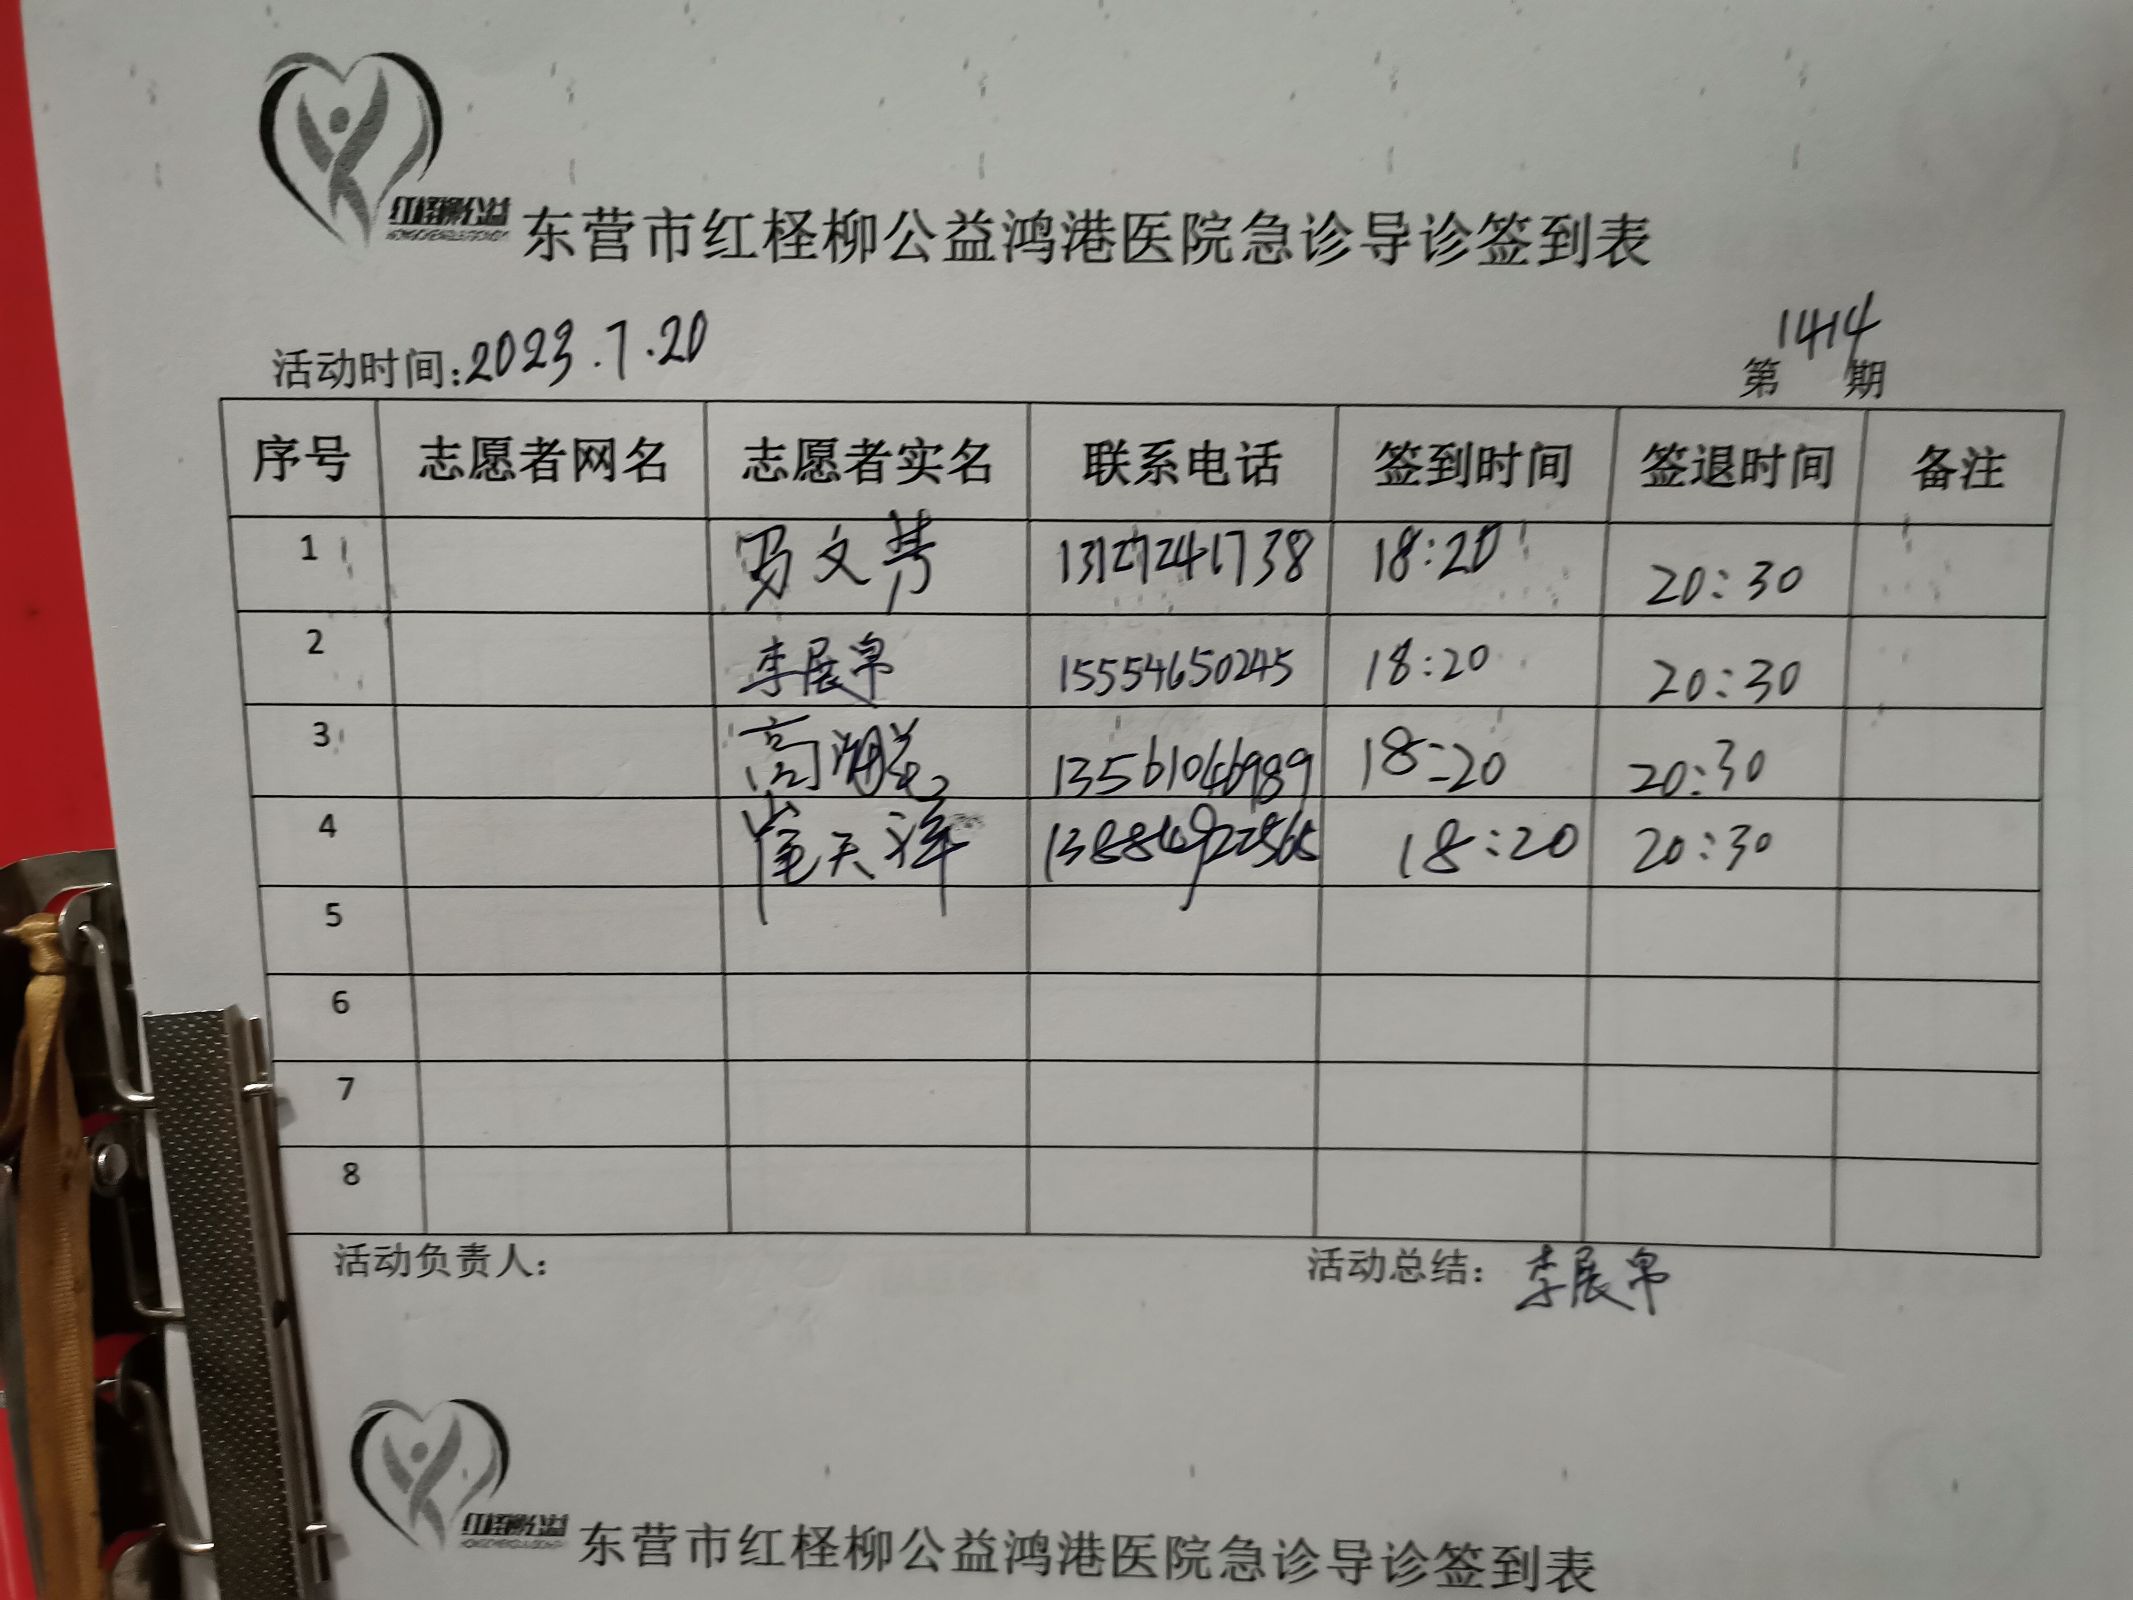 红柽柳公益
东营市红柽柳公益鸿港医院急诊导诊签到表
活动时间:2023.7.20
第1414期
序号 志愿者网名 志愿者实名 联系电话 签到时间 签退时间 备注
1 马文芳 13127241738 18:20 20:30
2 李展帛 15554650245 18:20 20:30
3 高 13561046989 18:20 20:30
4 崔天洋 18:20 20:30
5
6
7
8
活动负责人: 活动总结: 李展帛
红柽柳公益
东营市红柽柳公益鸿港医院急诊导诊签到表